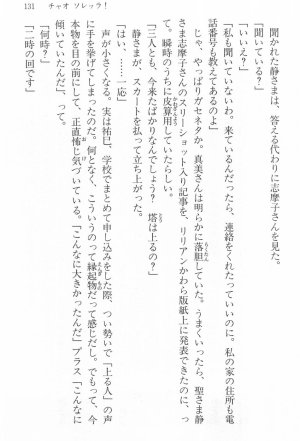 131　チャオ ソレッラ！
聞かれた静さまは、答える代わりに志摩子さんを見た。
「聞いている？」
「いいえ？」
「私も聞いていないわ。来ているんだったら、連絡をくれたっていいのに。私の家の住所も電
話番号も教えてあるのよ」
じゃ、やっぱりガセネタか。真美さんは明らかに落胆していた。うまくいったら、聖さま静
さま志摩子さんのスリーショット入り記事を、リリアンかわら版紙上に発表できたのに、っ
て。瞬時のうちに皮算用していたらしい。
「三人とも、今来たばかりなんでしょう？　塔は上るの？」
静さまが、スカートを払って立ち上がった。
「はい、……一応」
声が小さくなる。実は祐巳、学校でまとめて申し込みをした際、つい勢いで「上る人」の声
に手を挙げてしまったのだ。何となく、こういうのって縁起物だって感じだし。でもって、今
本物を目の前にして、正直怖じ気づいている。「こんなに大きかったんだ」プラス「こんなに
傾いていたんだ」って。
「何時？」
「二時の回です」